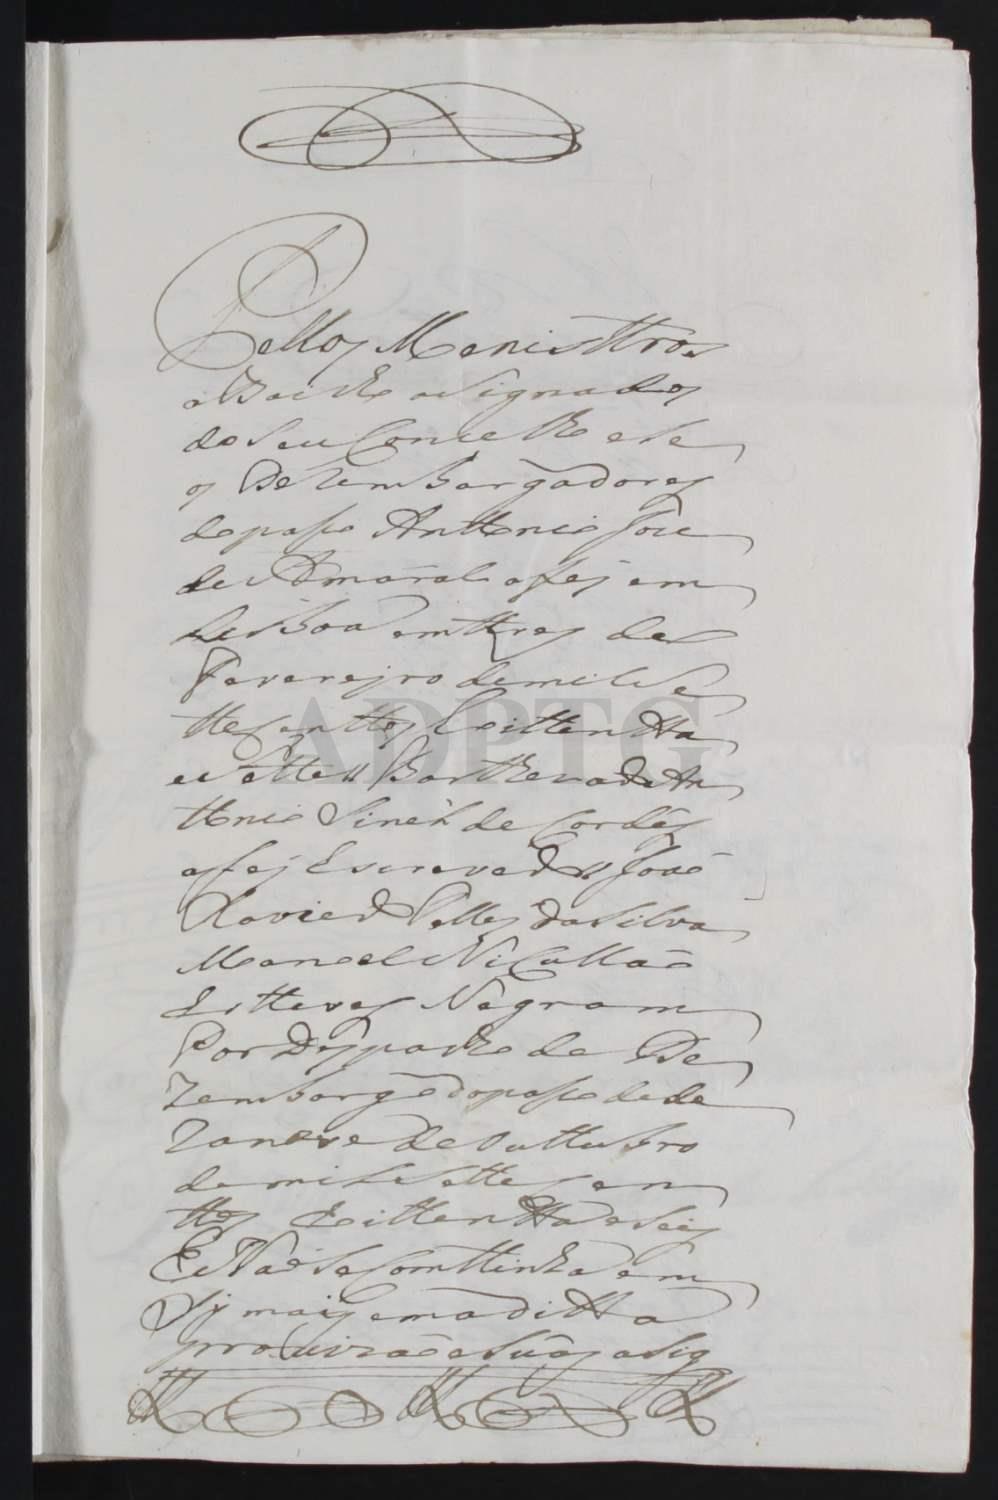 Pellos Menisttros
aBaicho asignados
do seu Concelho e se
os Dezembargadores
do paso Anttonio Joze
de Amaral a fes em
LisBoa em ttres de
Fevereyro de mil se
ttesenttos Coittentta
e sette // Bartholo de An
ttonio Sines de Cordes
a fes Escrever // João
Xavier Telles da Silva
Manoel Nicullão
Estteves Negram
Por Despacho do De
zembargo do paso de de
zanove de outtubro
de mil settesen
ttos Coittentta e seis
E Não se Conttinha em
Sy mais em a ditta
provizão e suas asig
ADPTG